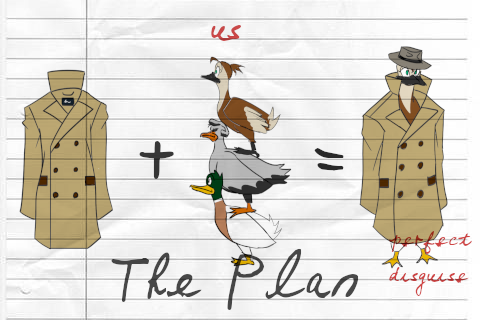 us
+
=
perfect
disguise
The Plan